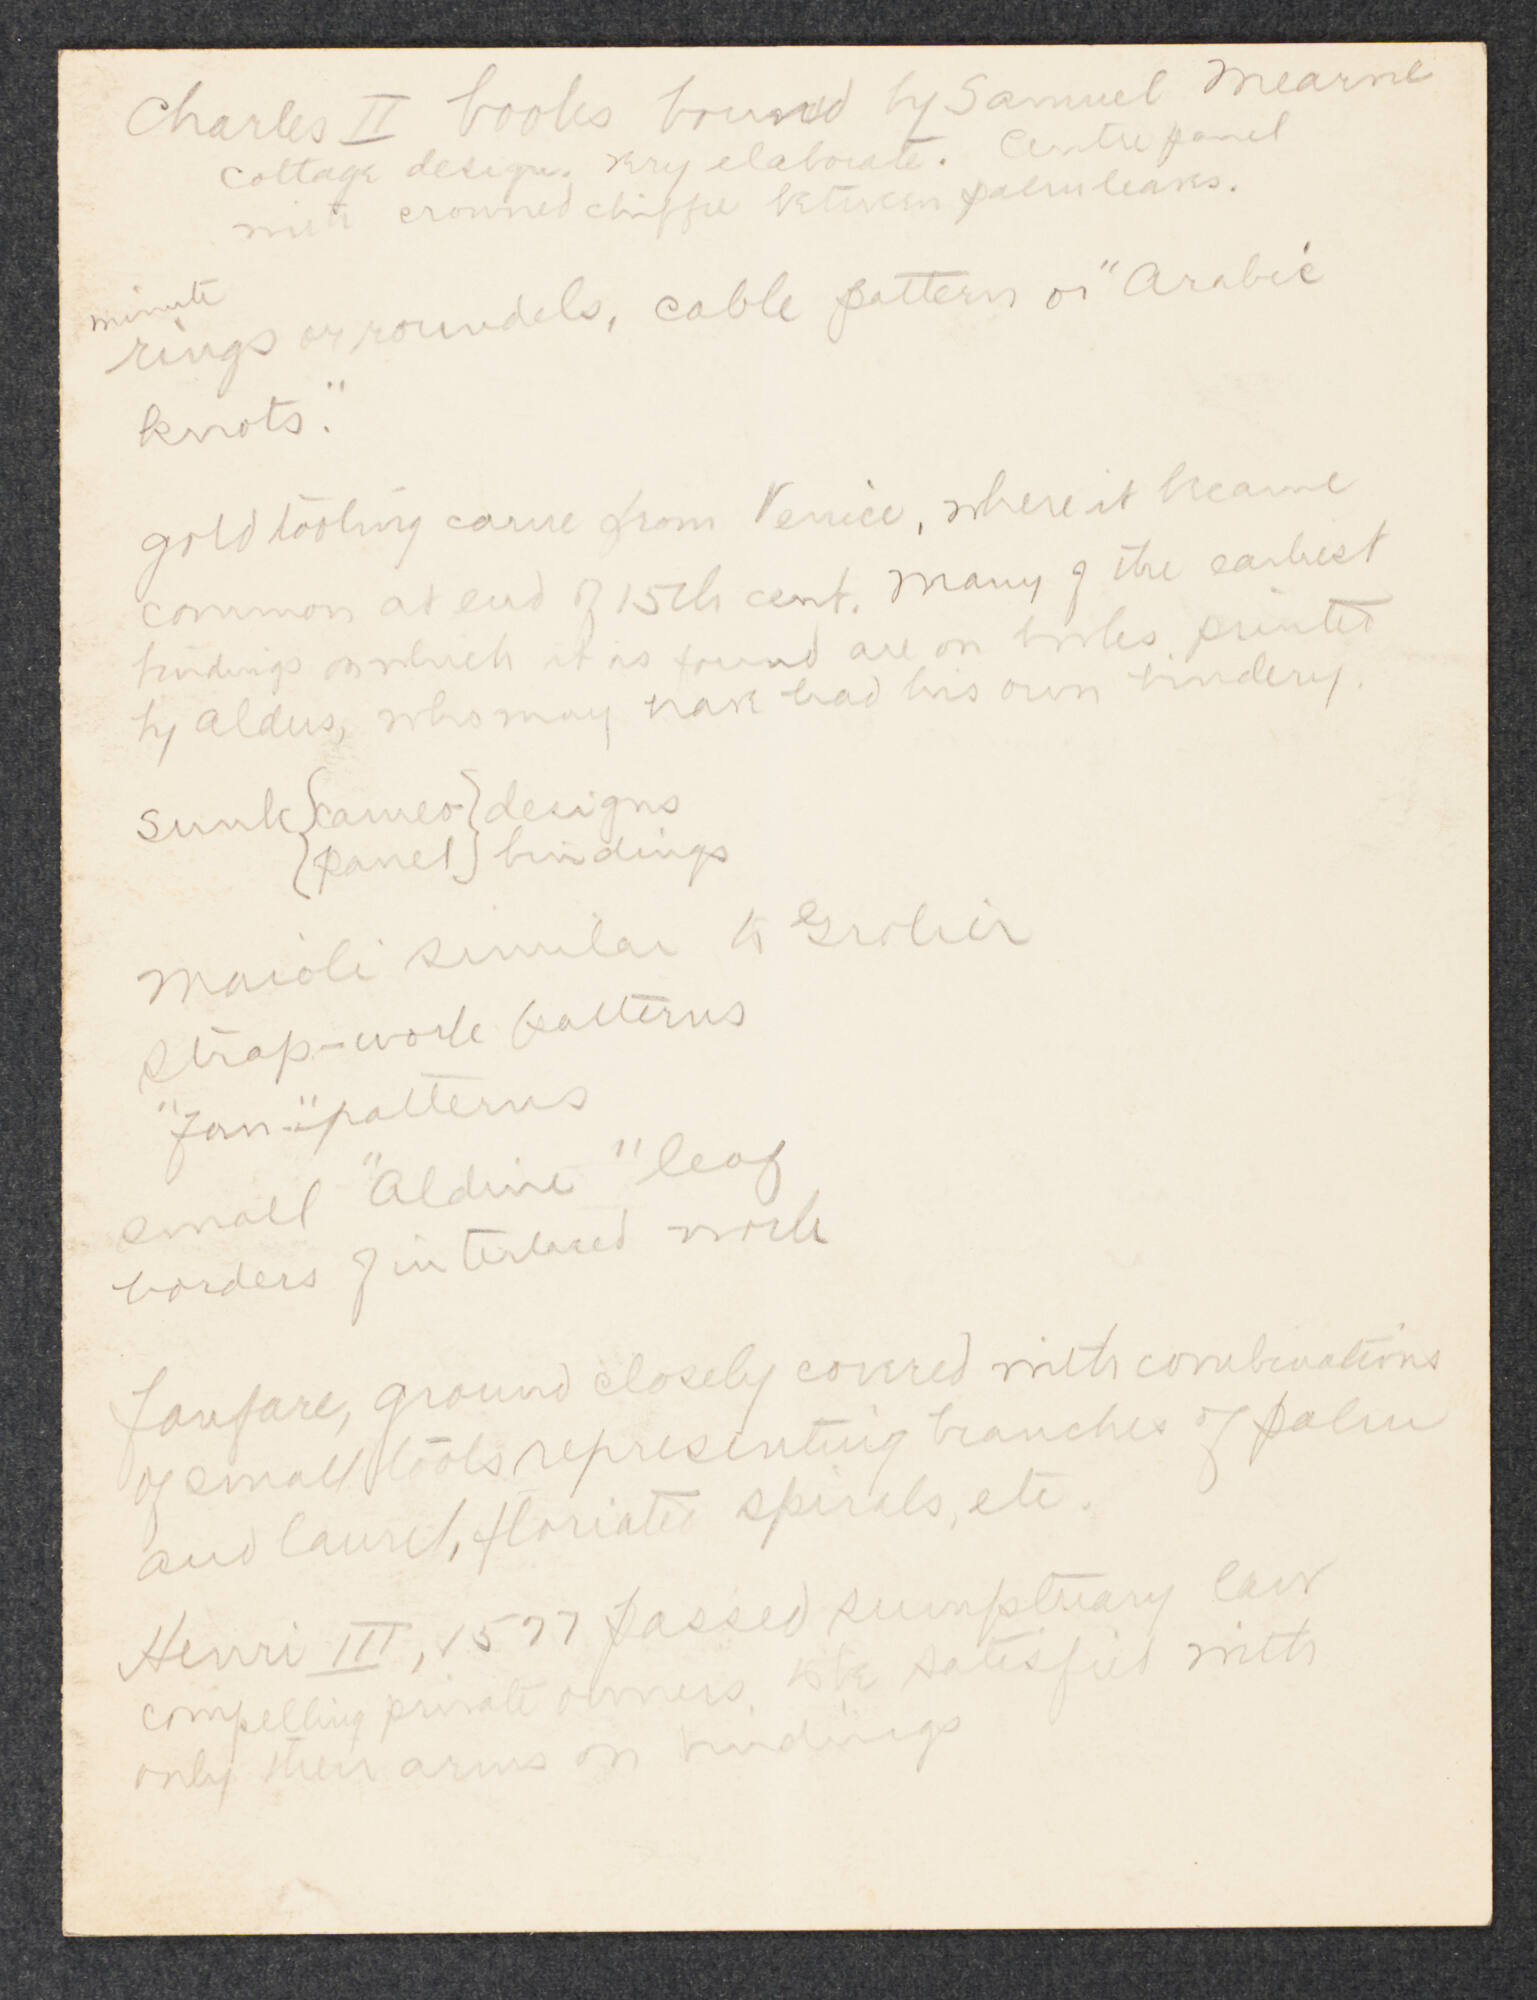 Charles II books bound by Samuel Mearne
cottage design, very elaborate. Centre panel
with crowned chiffre between palm leaves.
minute
rings or roundels, cable pattern or "Arabic
knots."
gold tooling came from Venice, where it became
common at end of 15th cent. Many of the earliest
bindings on which it is found are on books printed
by Aldus, who may have had his own bindery.
sunk {cameo} designs
{panel} bindings
Maioli similar to Grolier
strap-work patterns
"fan-" patterns
small "Aldine" leaf
borders of interlaced work
fanfare, ground closely covered with combinations
of small tools representing branches of palm
and laurel, floriated spirals, etc.
Henri III, 1577 passed sumptuary law
compelling private owners to be satisfied with
only their arms on bindings